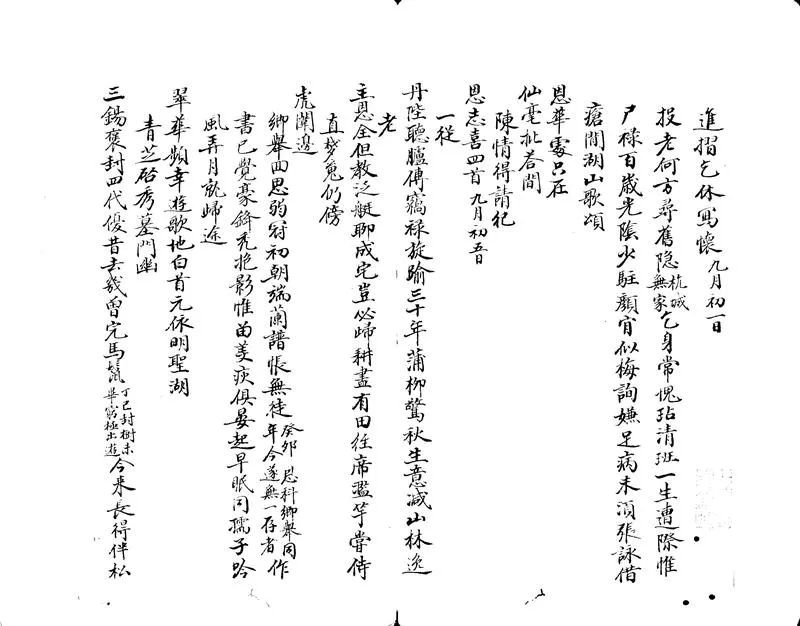 進摺乞休寫懷九月初一日
投老何方尋舊隱杭城無家乞身常愧玷清班一生遭際惟
尸祿百歲光陰少駐顏官似梅詢嫌足病未須張詠借
瘡閒湖山歌頌
恩華處只在
仙毫批荅間
陳情得請紀
恩志喜四首九月初五日
一從
丹陛聽臚傳竊祿旋踰三十年蒲柳驚秋生意減山林逸
老
主恩全但教泛艇聊成宅豈必歸耕盡有田經席濫竽嘗侍
直仍傍
虎闈邊
鄉舉回思弱冠初朝端蘭譜悵無徒癸卯恩科鄉舉同年今遂無一存者作
書已覺豪鋒禿抱影惟留美疢俱晏起早眠同孺子吟
風弄月就歸途
翠華頻幸遊歌地白首元依明聖湖
青芝啟秀墓門幽
三錫褒封四代優昔去幾曾完馬鬣丁巳封樹未畢出遊今來長得伴松